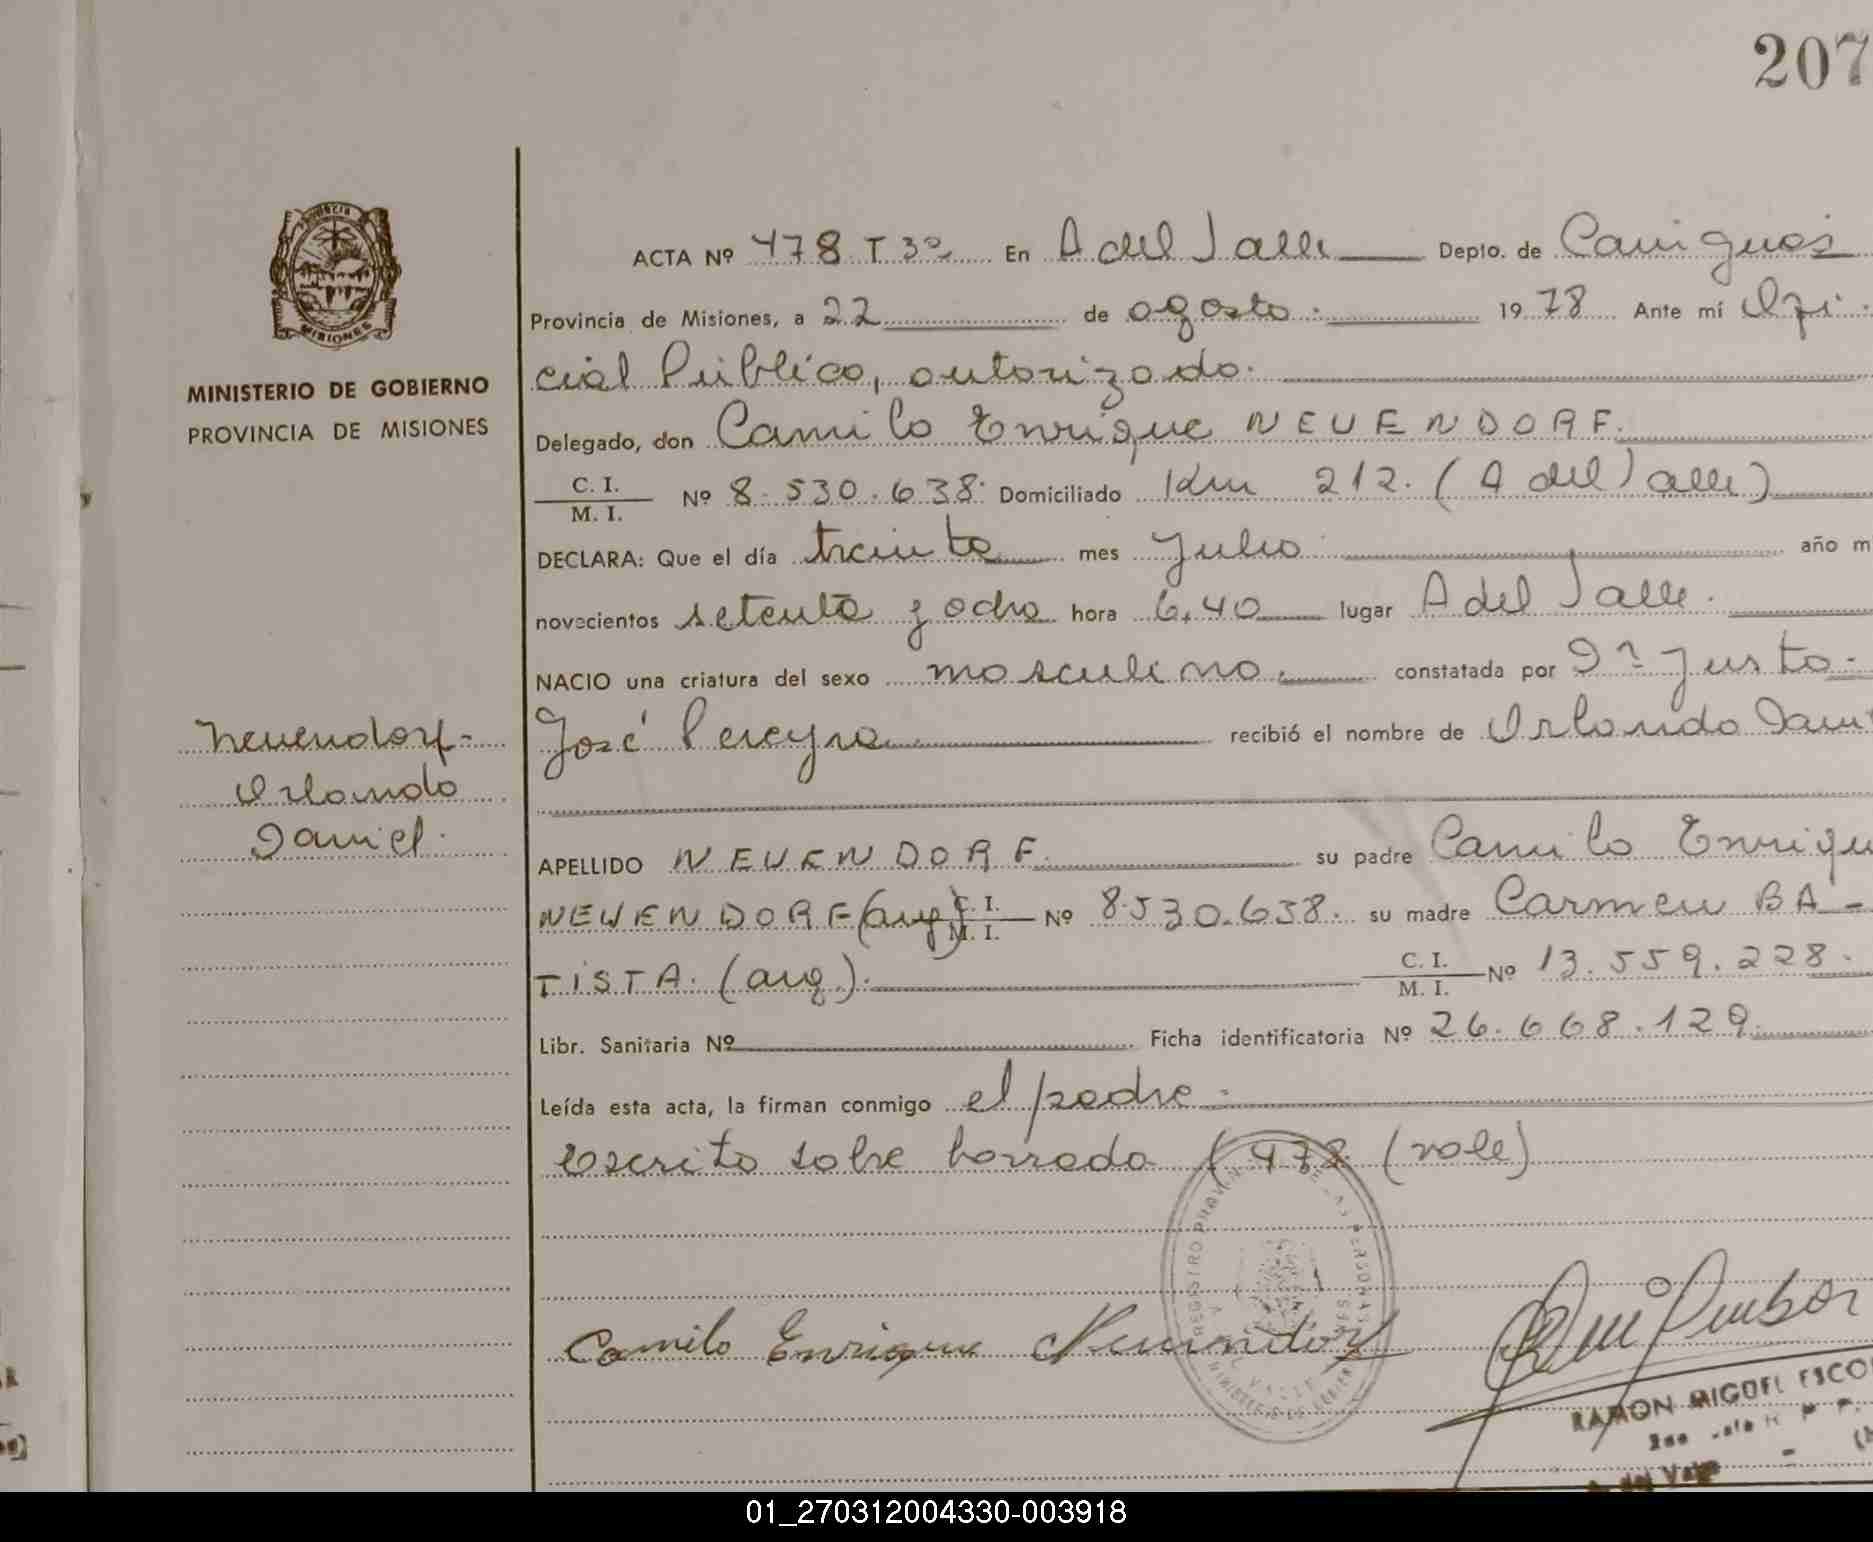 207
PROVINCIA
MISIONES
MINISTERIO DE GOBIERNO
PROVINCIA DE MISIONES
Neuendorf-
Orlando
Daniel.
ACTA Nº 478 T 3º En A del Valle Depto. de Cainguás
Provincia de Misiones, a 22 de agosto. 1978 Ante mí Ofi-
cial Público, autorizado.
Delegado, don Camilo Enrique NEUENDORF.
C. I.
M. I. Nº 8.530.638. Domiciliado Km 212. (A del Valle)
DECLARA: Que el día treinta mes Julio año m
novecientos setenta y ocho hora 6,40 lugar A del Valle.
NACIO una criatura del sexo masculino. constatada por Dr Justo-
José Pereyra recibió el nombre de Orlando Dani
APELLIDO NEUENDORF. su padre Camilo Enriqu
NEUENDORF (arg) C. I.
M. I. Nº 8.530.638. su madre Carmen BA-
TISTA. (arg). C. I.
M. I. Nº 13.559.228.
Libr. Sanitaria Nº Ficha identificatoria Nº 26.668.129
Leída esta acta, la firman conmigo el padre-
Escrito sobre borrado (478 (vale)
REGISTRO
Camilo Enrique Neuendorf
RAMON MIGUEL ESCO
A. del Valle
01_270312004330-003918